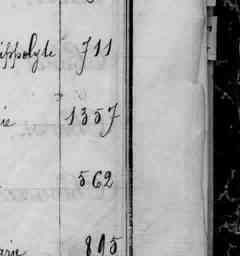 ippolyte 711
ie 1357
562
arie 815